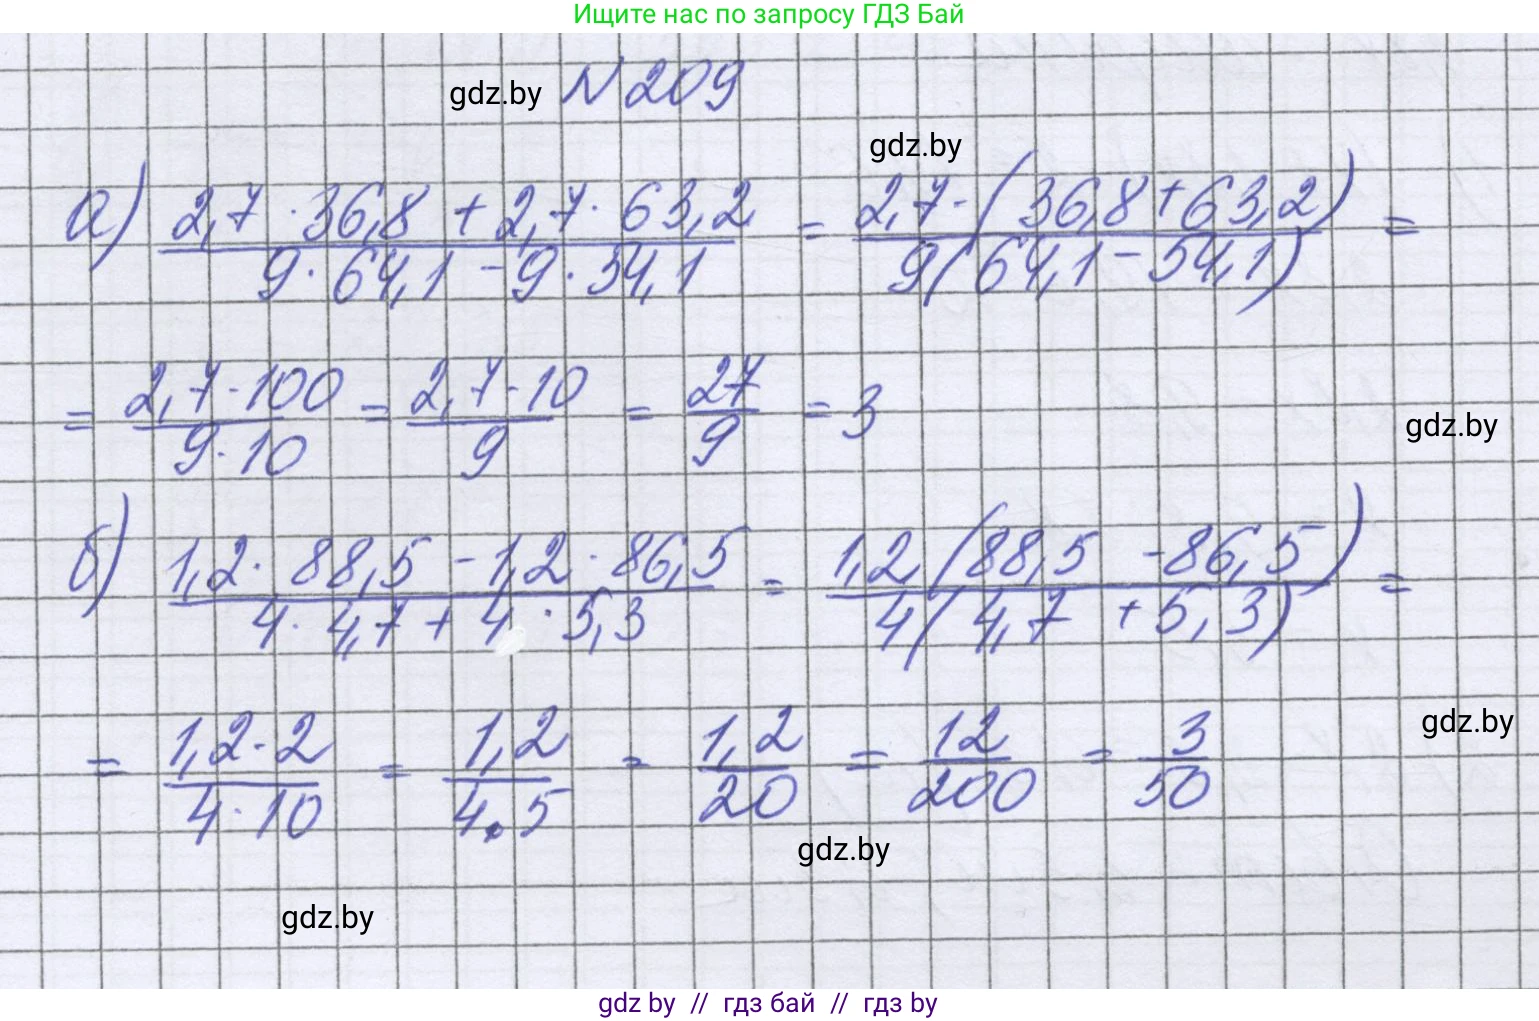 Ищите нас по запросу ГДЗ Бай
gdz.by N 209
gdz.by
а) (2,7 · 36,8 + 2,7 · 63,2)/(9 · 64,1 - 9 · 54,1) = (2,7 · (36,8 + 63,2))/(9(64,1 - 54,1)) =
= (2,7 · 100)/(9 · 10) = (2,7 · 10)/9 = 27/9 = 3
gdz.by
б) (1,2 · 88,5 - 1,2 · 86,5)/(4 · 4,7 + 4 · 5,3) = (1,2 (88,5 - 86,5))/(4(4,7 + 5,3)) =
gdz.by
= (1,2 · 2)/(4 · 10) = 1,2/(4 · 5) = 1,2/20 = 12/200 = 3/50
gdz.by
gdz.by
gdz by // гдз бай // гдз by